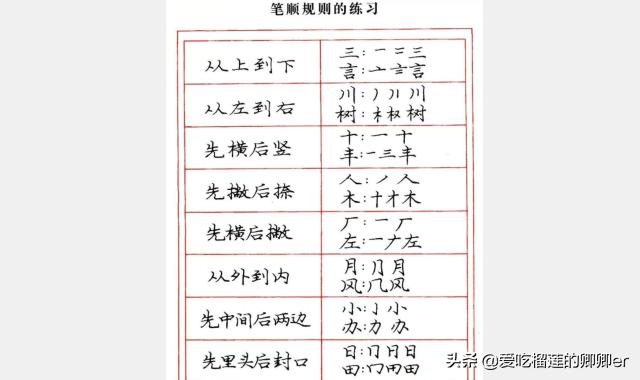 笔顺规则的练习
从上到下 三:一二三
言:亠言言
从左到右 川:丿川川
树:木权树
先横后竖 十:一十
丰:一三丰
先撇后捺 人:丿人
木:十才木
先横后撇 厂:一厂
左:一𠂇左
从外到内 月:冂月
风:几风
先中间后两边 小:亅小小
办:力办
先里头后封口 日:冂日日
田:冂田田
头条@爱吃榴莲的卿卿er